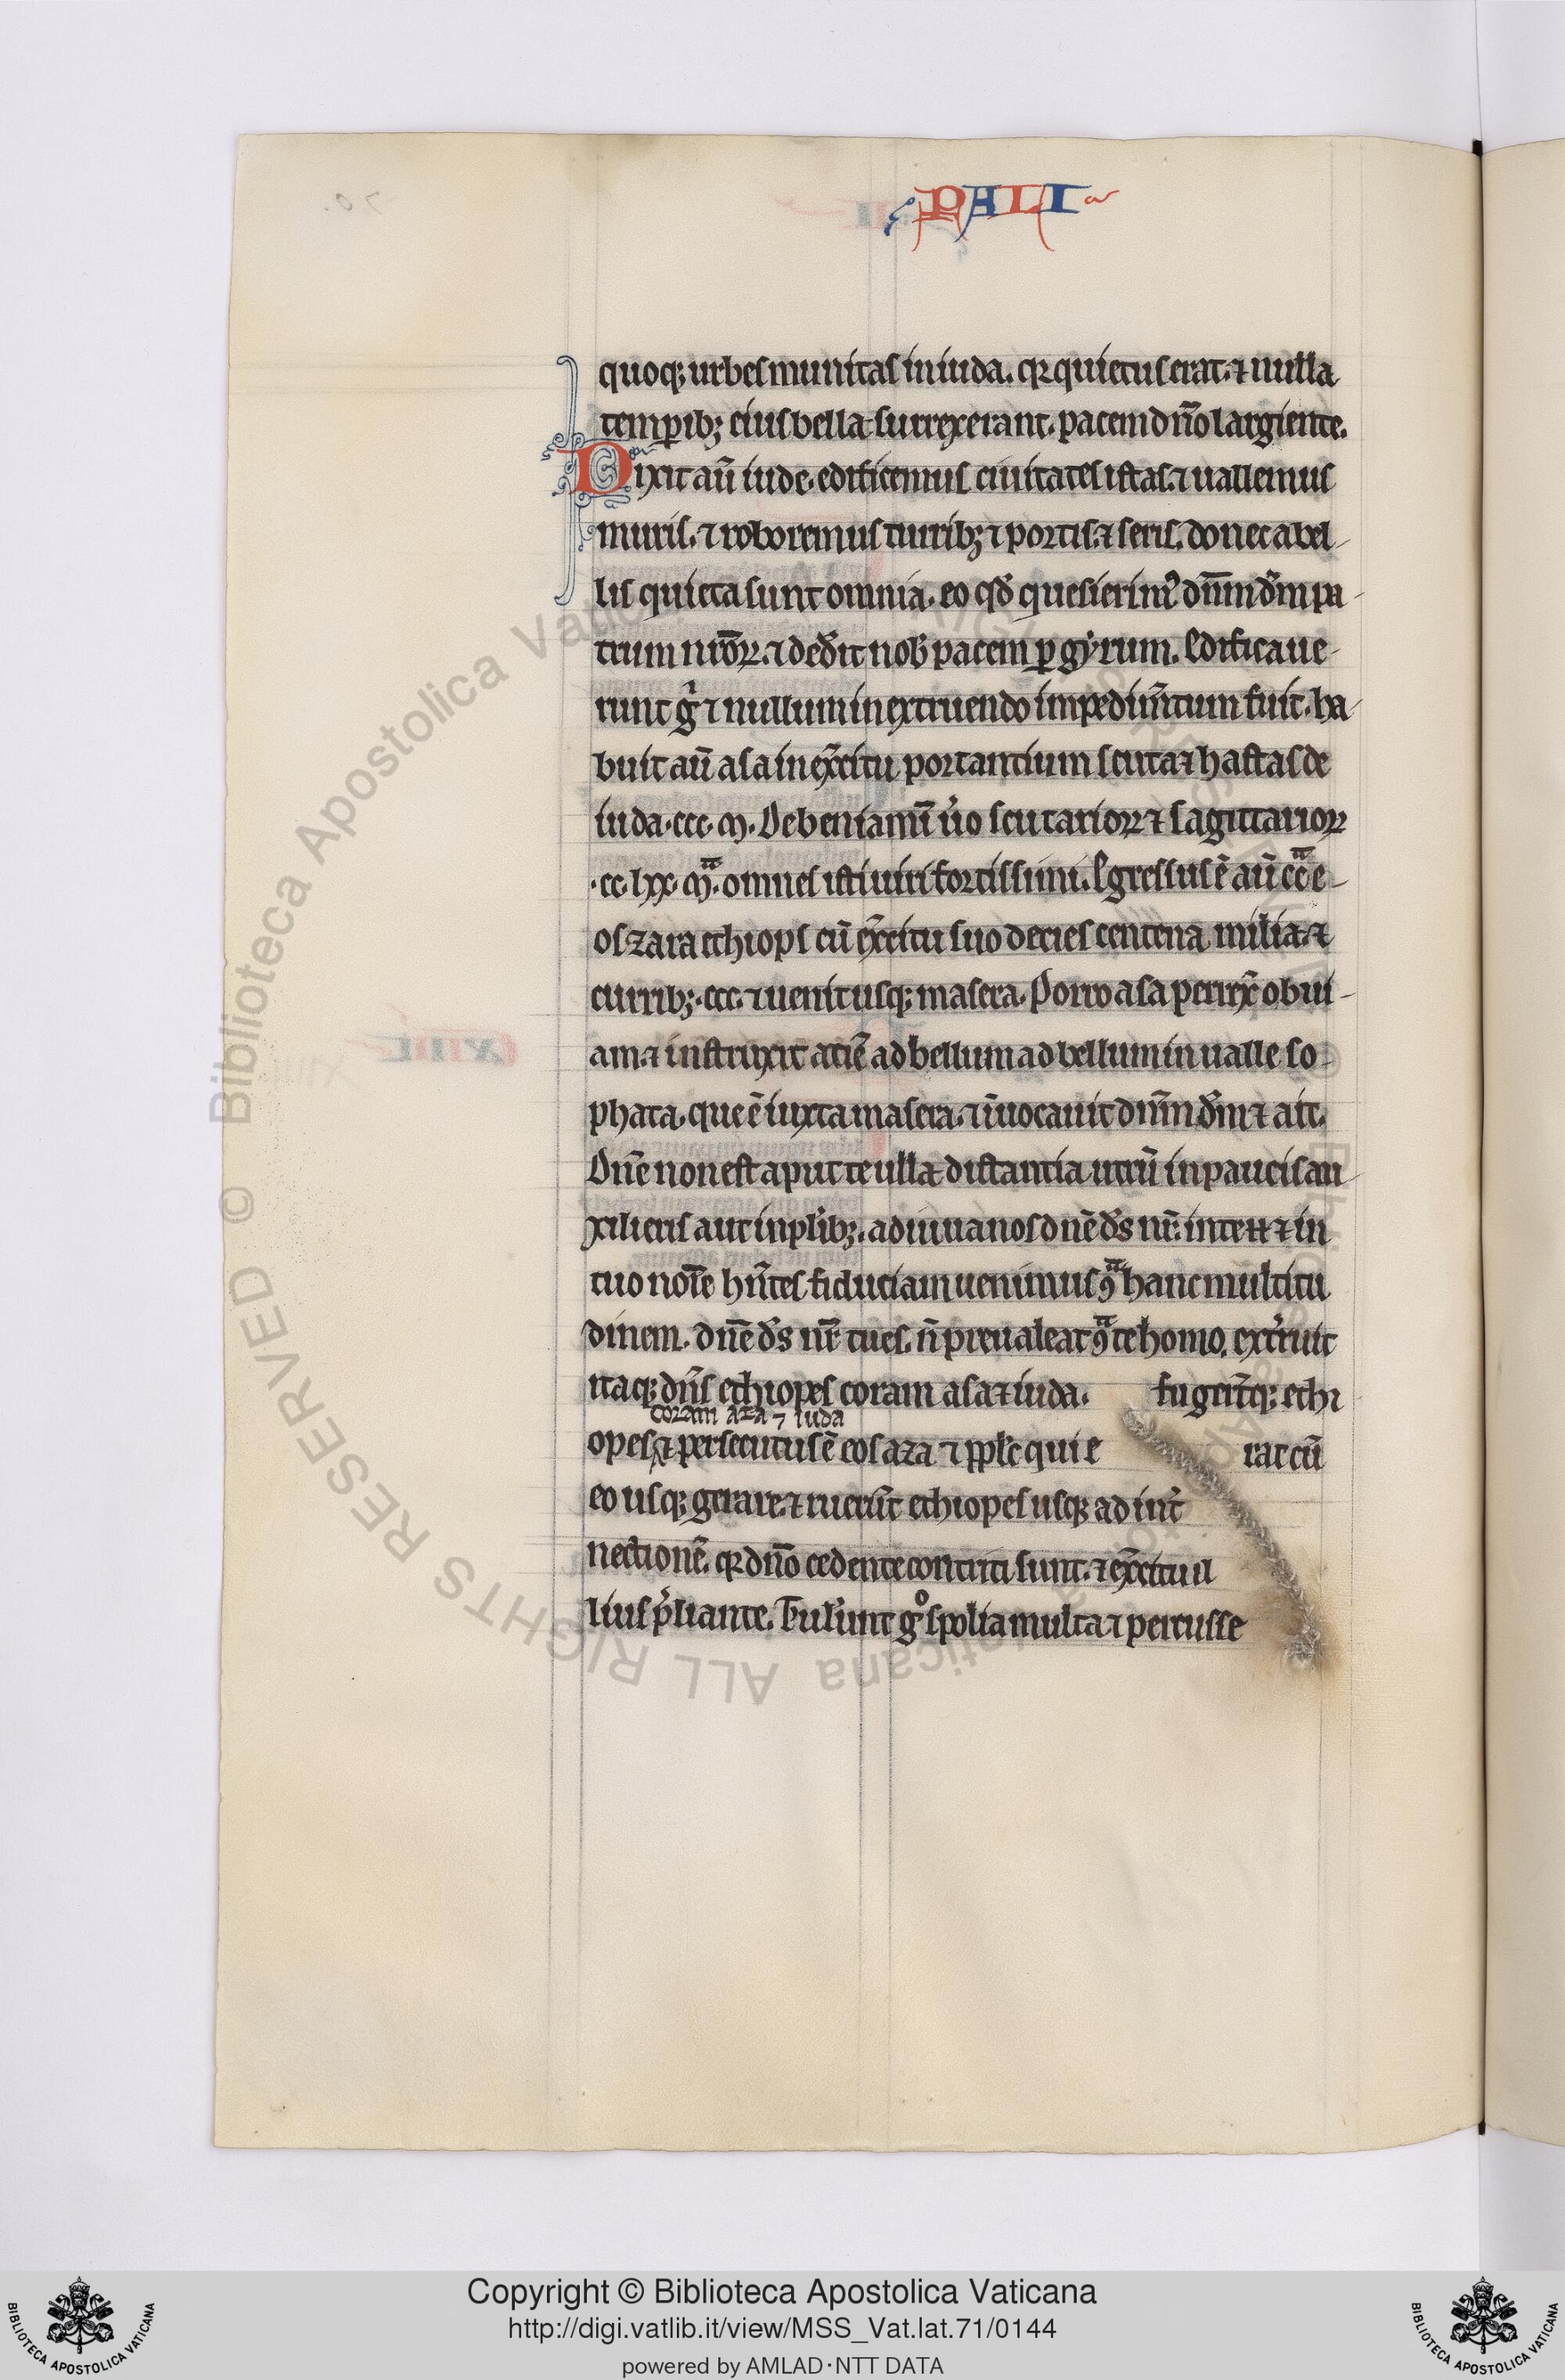 PALI
quoq; urbes munitas in iuda. qꝛ quietus erat. ⁊ nulla
temꝑib; eius bella surrexerant. pacem dño largiente.
Dixit aũ iude. edificemus ciuitates istas. ⁊ uallemus
muris. ⁊ roboremus turrib; ⁊ portis. ⁊ seris. donec a bel-
lis quieta sunt omnia. eo qđ quesierimꝰ dñm dm̃ pa-
trum nr̃oꝝ. ⁊ dedit nob̃ pacem ꝑ gyrum. Edificaue-
runt g̃ ⁊ nullum in extruendo impedim̃tum fuit. ha-
buit aũ asa in ex̃citu portantium scuta ⁊ hastas de
iuda .ccc. m. De beniamin ũo scutarioꝝ ⁊ sagittarioꝝ
.cc. lxx. m. omnes isti uiri fortissimi. Egressus ẽ aũ cc̃ e-
os zara ethiops cũ ex̃citu suo decies centena milia. ⁊
currib; .ccc. ⁊ uenit usq; masera. Porro asa perrex̃ obui-
am. ⁊ instruxit aciẽ ad bellum ad bellum in ualle so-
phata. que ẽ iuxta masera. ⁊ ĩuocauit dñm dm̃ ⁊ ait.
Dñe non est aput te ulla distantia utrũ in paucis au-
xilieris aut in plib;. adiuua nos dñe ds̃ nr̃. in te ⁊ in
tuo noĩe hñtes fiduciam uenimus ꝯ̃ hanc multitu
dinem. dñe ds̃ nr̃ tu es. ñ preualeat ꝯ̃ te homo. ext̃ruit
itaq; dñs ethiopes coram asa ⁊ iuda. fugerũtq; ethi
coram aza ⁊ iuda
opes ⁊ persecutus ẽ eos aza ⁊ ppl̃s qui e rat cũ
eo usq; gerare. ⁊ ruerũt ethiopes usq; ad int̃
nectionẽ. qꝛ dño cedente contriti sunt. ⁊ ex̃citu il
lius p̃liante. Tul̃unt gͦ spolia multa ⁊ percusse
Copyright © Biblioteca Apostolica Vaticana
http://digi.vatlib.it/view/MSS_Vat.lat.71/0144
powered by AMLAD·NTT DATA
BIBLIOTECA APOSTOLICA VATICANA
BIBLIOTECA APOSTOLICA VATICANA
© Biblioteca Apostolica Vaticana ALL RIGHTS RESERVED